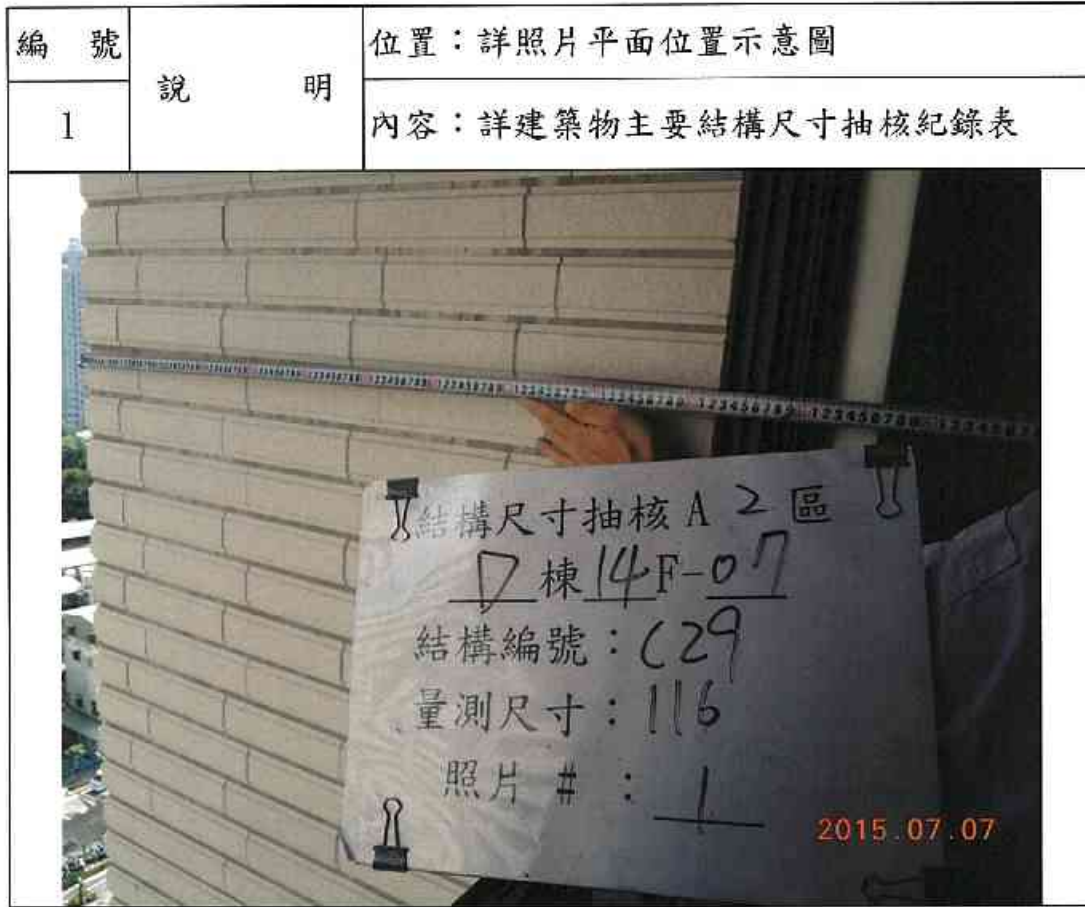 編 號
說 明
位置：詳照片平面位置示意圖
1
內容：詳建築物主要結構尺寸抽核紀錄表
結構尺寸抽核 A 2 區
D 棟 14 F-07
結構編號：C29
量測尺寸：116
照片 # ： 1
2015.07.07